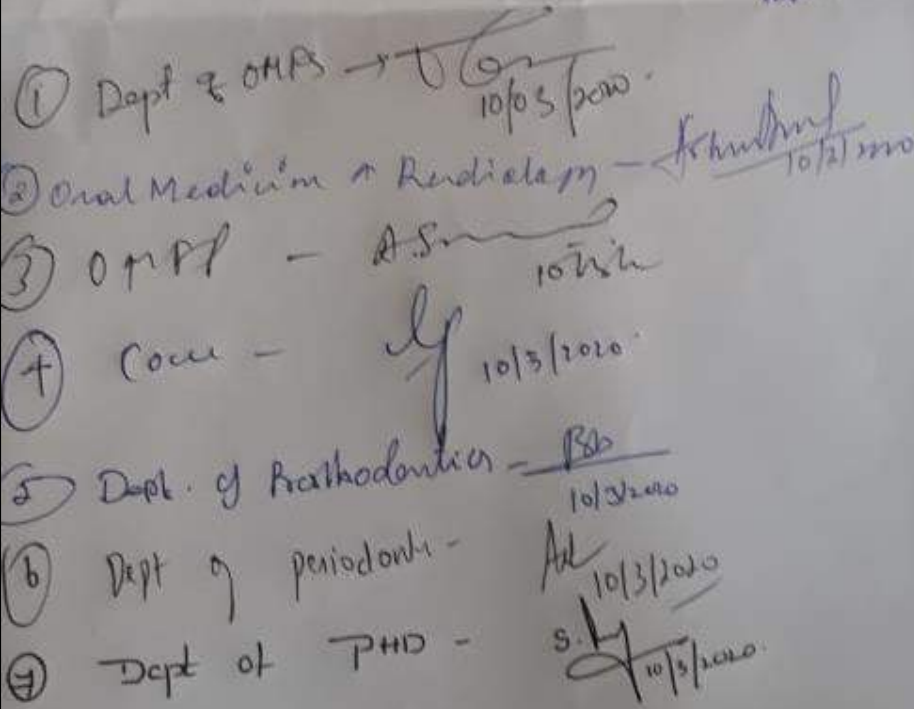 ① Dept of OMFS → 10/03/2020.
② Oral Medicine & Radiology - 10/2/2020
③ OMFP - A.S
④ Cons - 10/3/2020.
⑤ Dept. of Prosthodontics - 10/3/2020
⑥ Dept of periodonti - 10/3/2020
⑦ Dept of PHD - 10/3/2020.